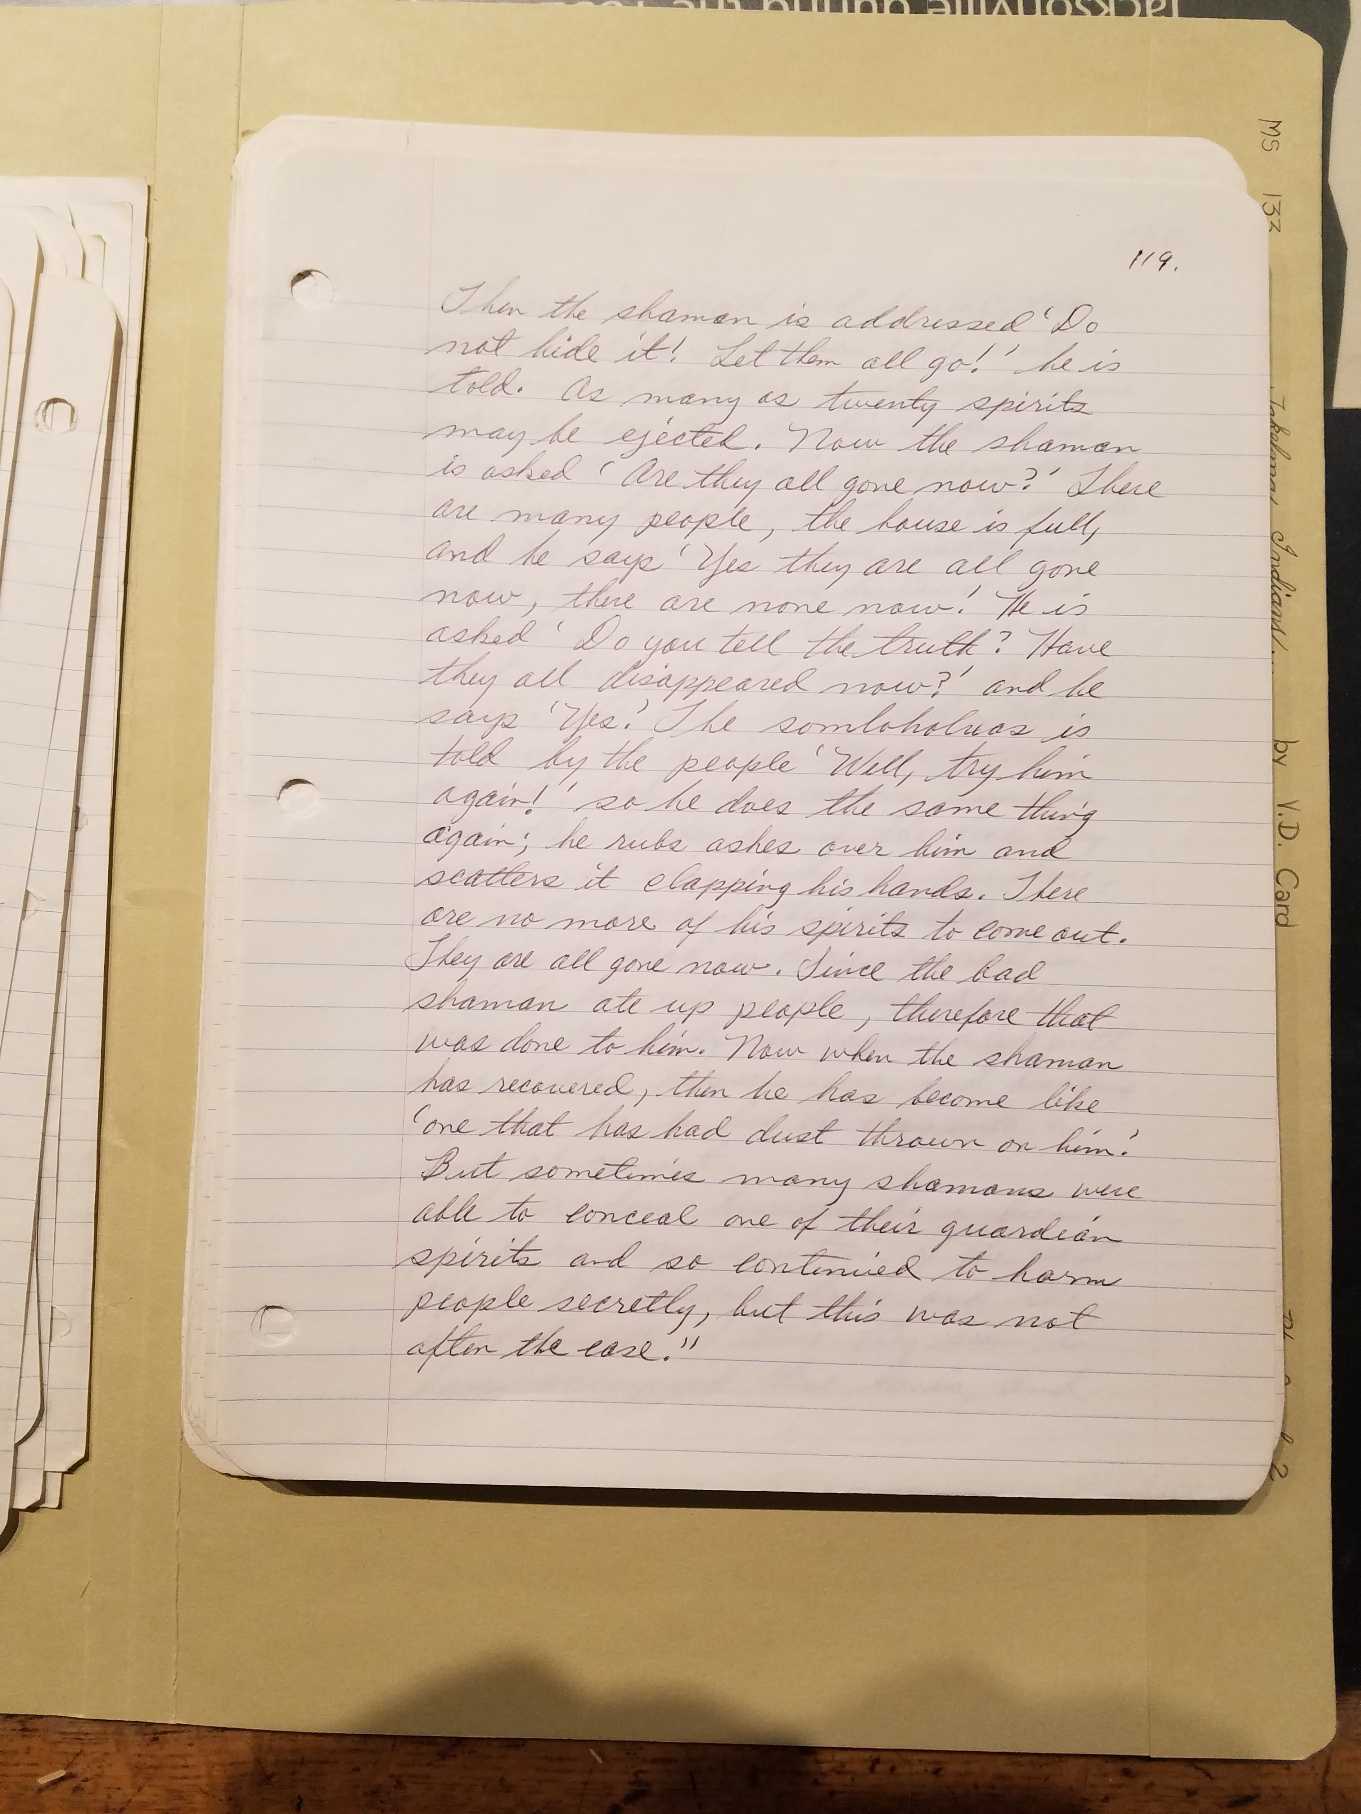 Jacksonville during the
119.
Then the shaman is addressed 'Do
not hide it! Let them all go!' he is
told. As many as twenty spirits
may be ejected. Now the shaman
is asked 'Are they all gone now?' There
are many people, the house is full,
and he says 'Yes they are all gone
now, there are none now.' He is
asked 'Do you tell the truth? Have
they all disappeared now?' and he
says 'Yes.' The somloholxas is
told by the people 'Well, try him
again!' so he does the same thing
again; he rubs ashes over him and
scatters it clapping his hands. There
are no more of his spirits to come out.
They are all gone now. Since the bad
shaman ate up people, therefore that
was done to him. Now when the shaman
has recovered, then he has become like
'one that has had dust thrown on him.'
But sometimes many shamans were
able to conceal one of their guardian
spirits and so continued to harm
people secretly, but this was not
often the case."
MS 132 Takelma Indians... by V.D. Card 2